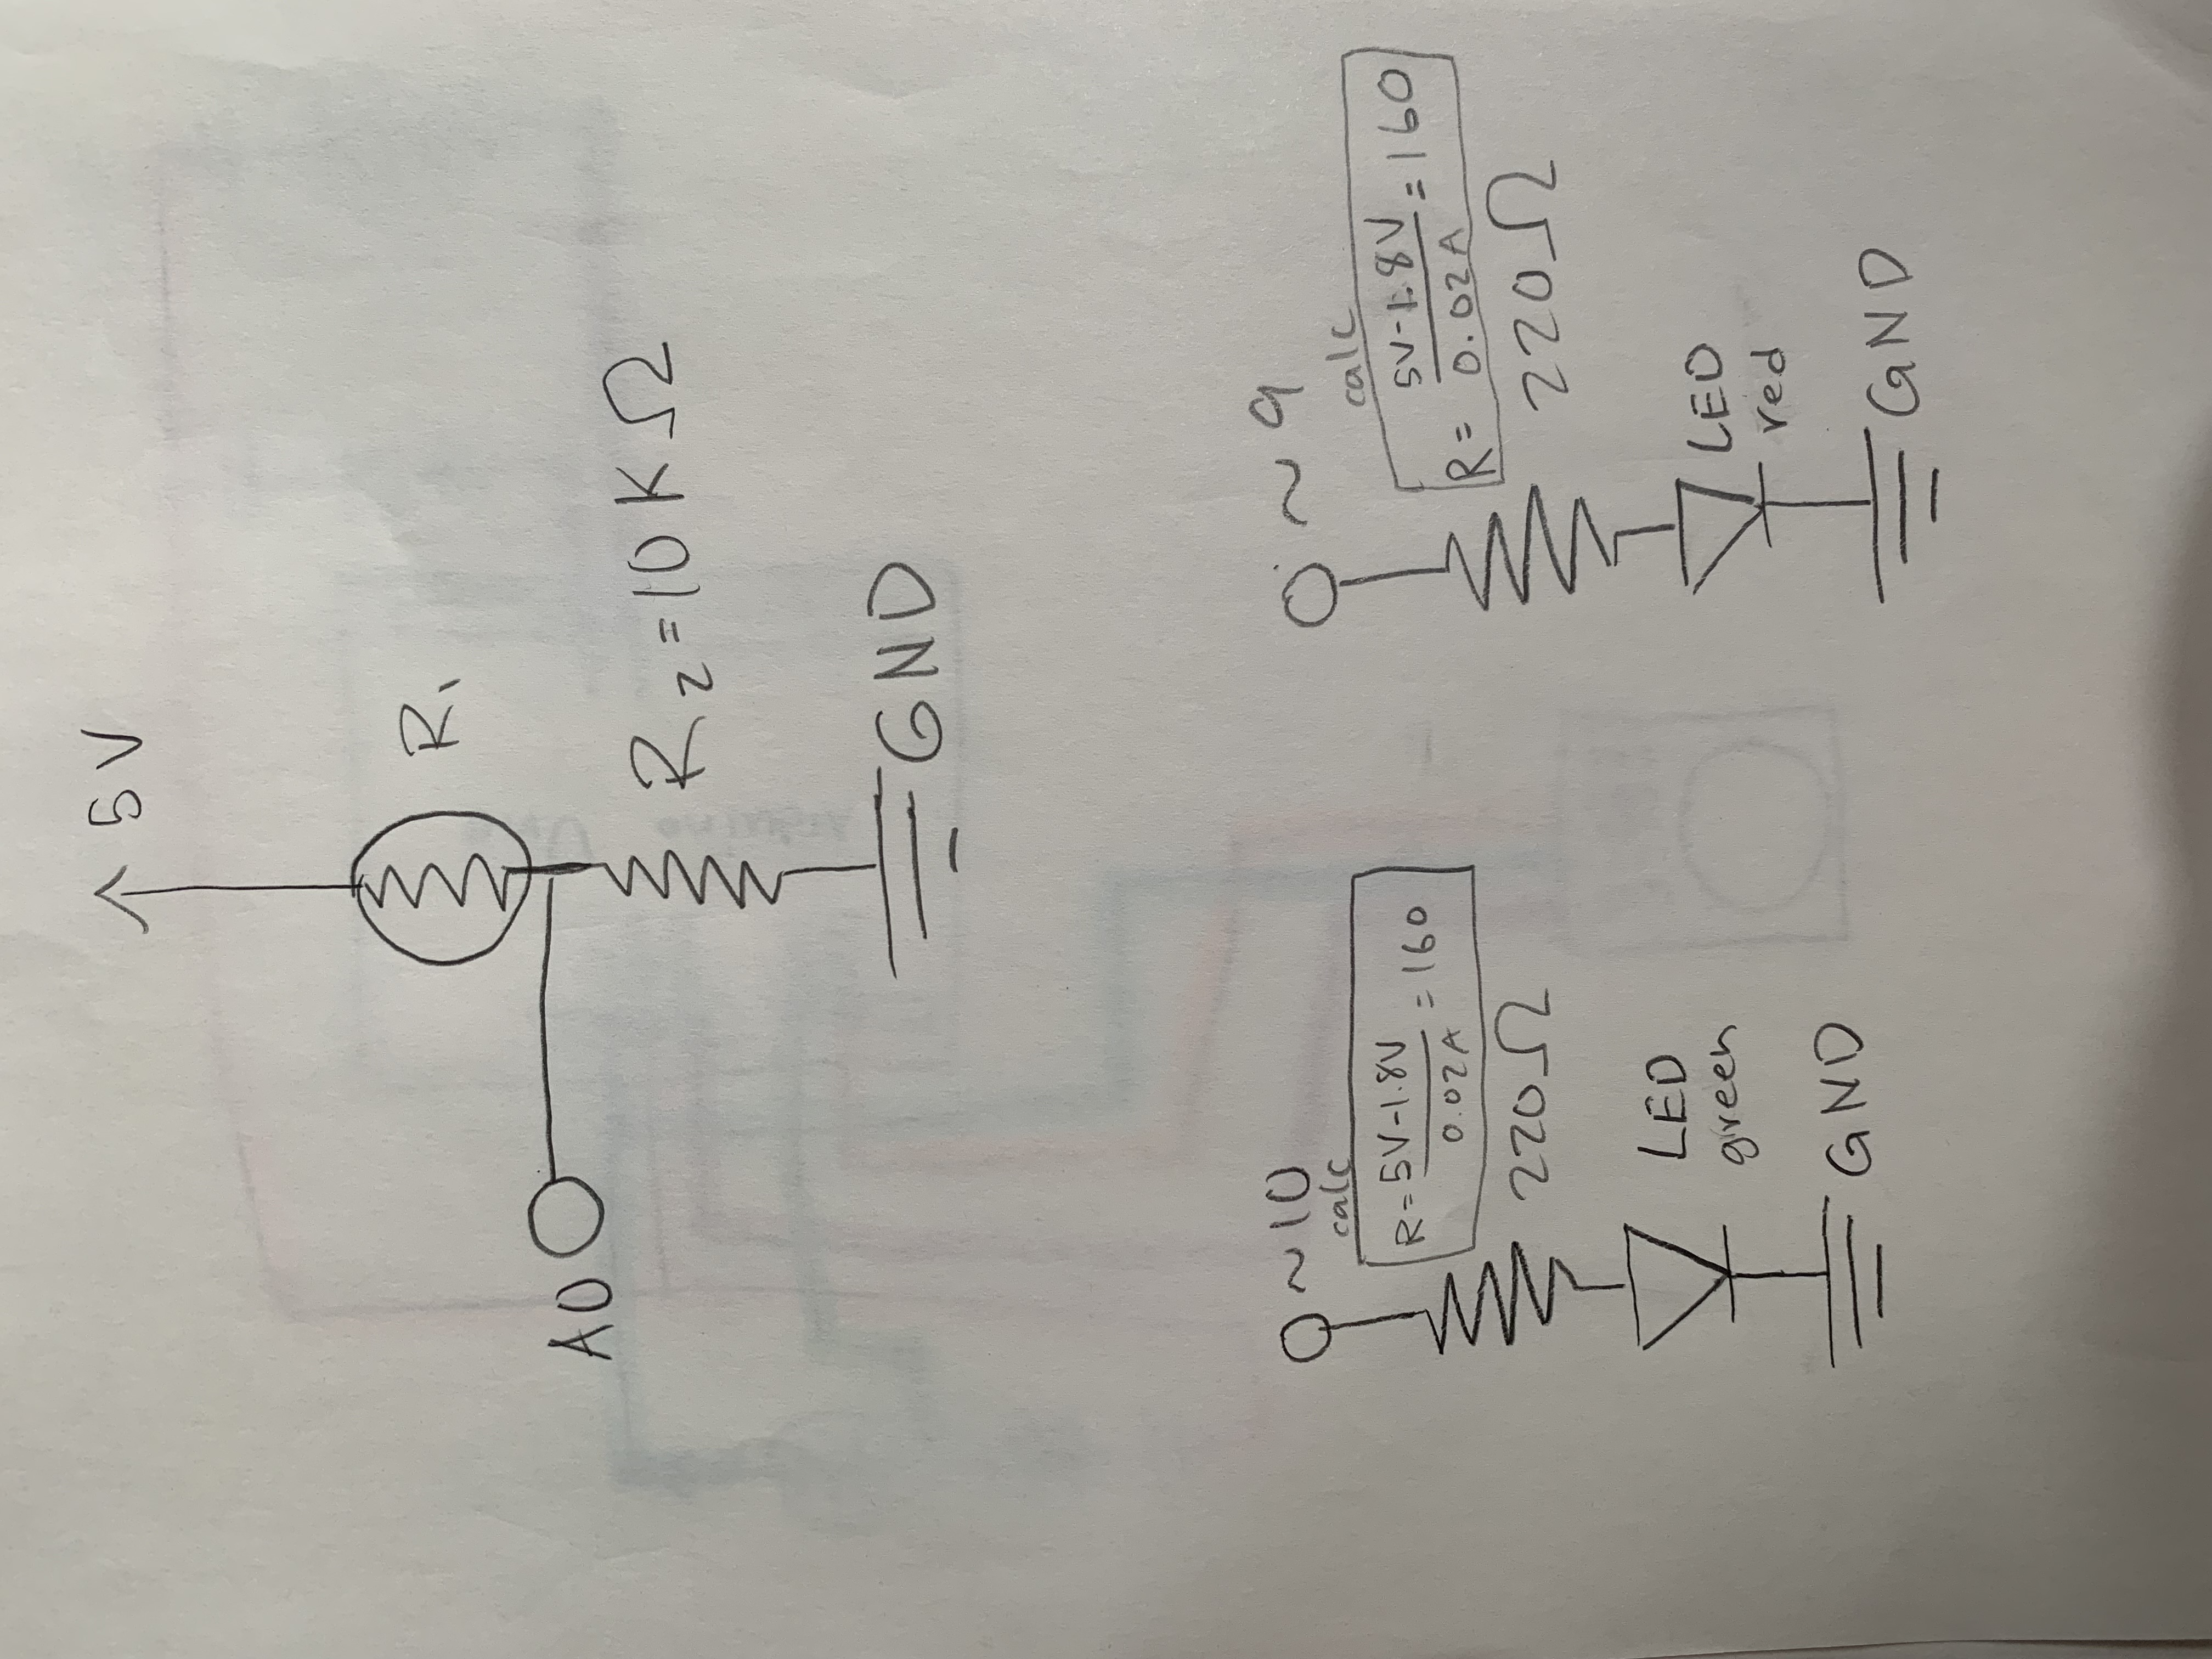 5V
R1
A0
R2=10KΩ
GND
~10
calc
R=5V-1.8V/0.02A=160
220Ω
LED
green
GND
~9
calc
R=5V-1.8V/0.02A=160
220Ω
LED
red
GND